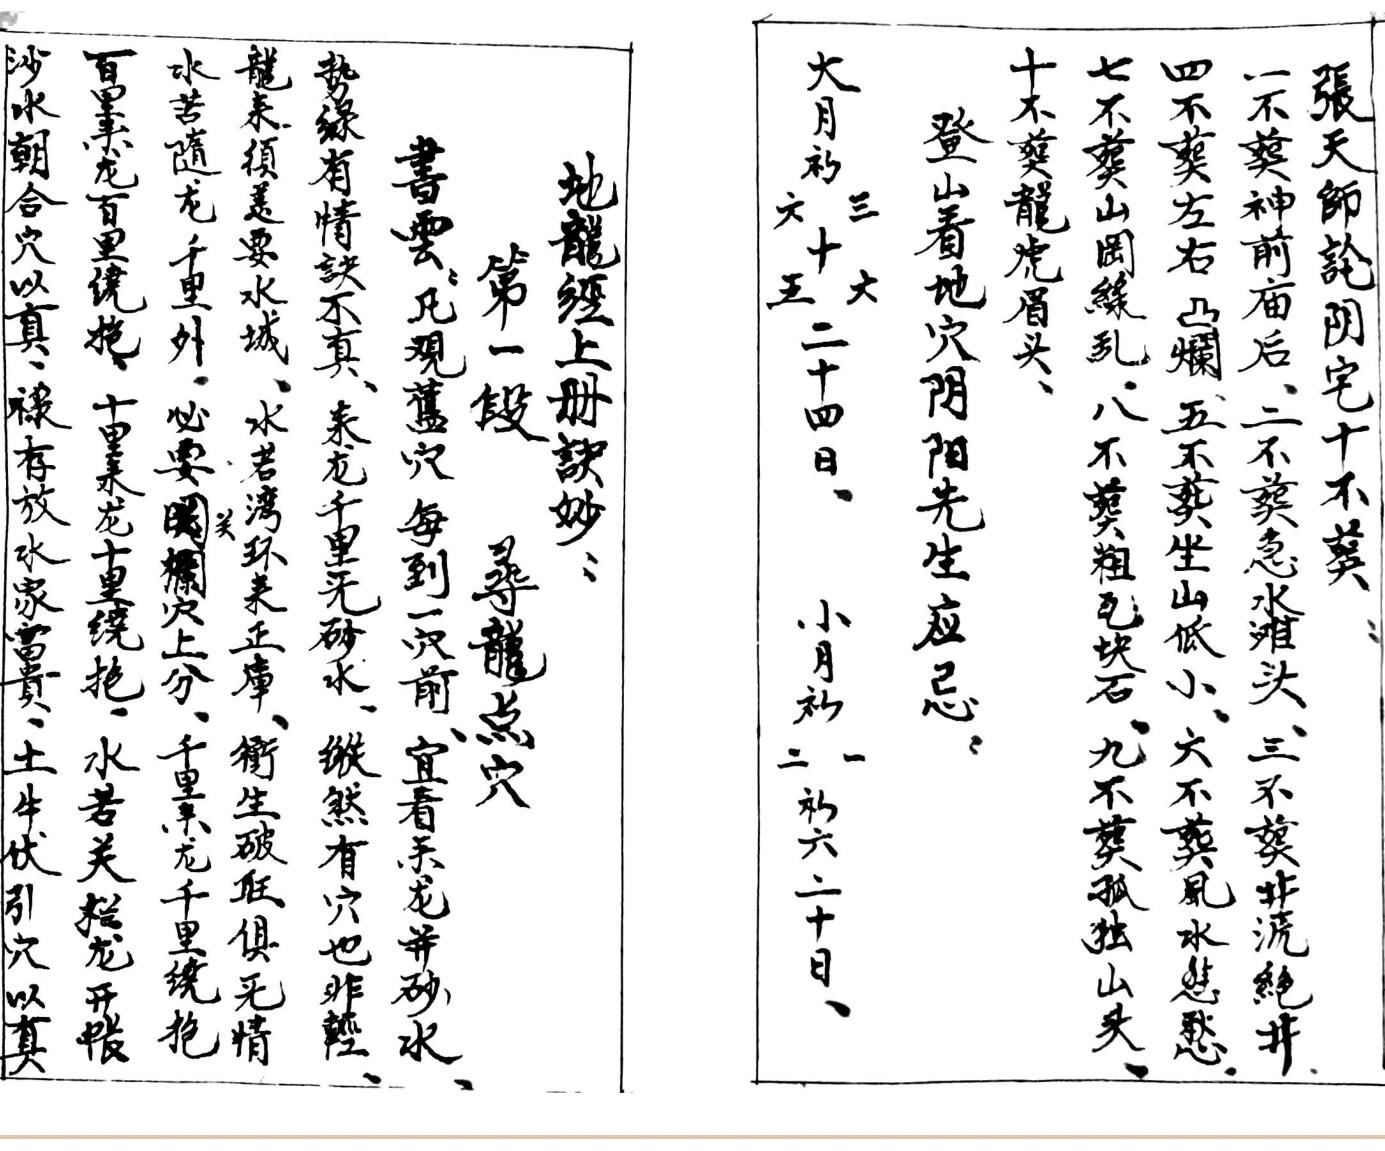 張天師論阴宅十不葬：
一不葬神前庙后、二不葬急水滩头、三不葬非流絕井
四不葬左右凸爛、五不葬坐山低小、六不葬風水悲愁、
七不葬山岡繚乱、八不葬粗瓦块石、九不葬孤独山头、
十不葬龍虎眉头、
登山看地穴阴阳先生应忌：
大月初三六十大五二十四日、 小月初一二初六二十日、
地龍經上册訣妙：
第一段 尋龍点穴
書雲：凡观舊穴每到一穴前、宜看来龙并砂水、
勢缘有情訣不真、来龙千里无砂水、縱然有穴也非輕、
龍来須还要水城、水若湾环来正庫、衝生破旺俱无情
水苦隨龙千里外、必要関关攔穴上分、千里来龙千里繞抱
百里来龙百里繞抱、十里来龙十里繞抱、水若关拦龙开帳
沙水朝合穴以真、禄存放水家富貴、土牛伏引穴以真